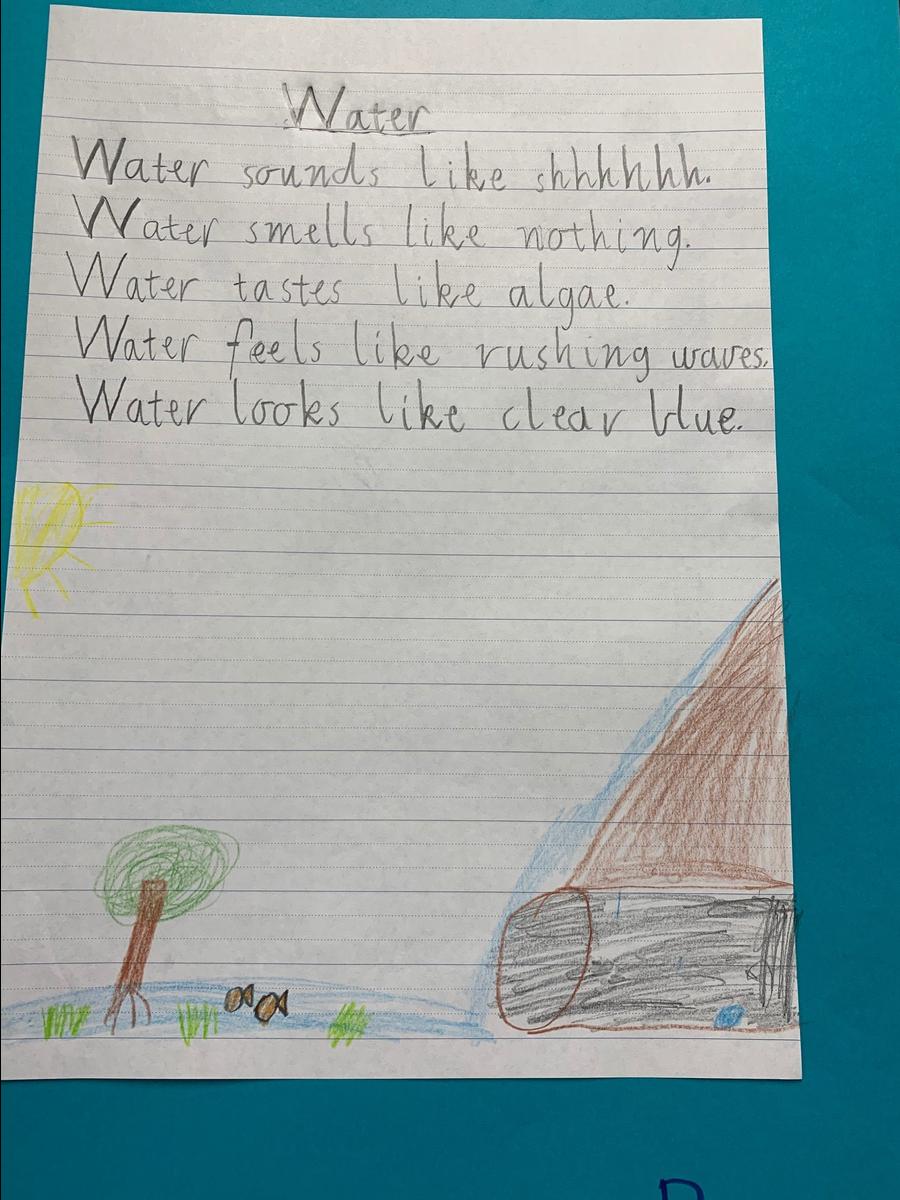 Water
Water sounds like shhhhhh.
Water smells like nothing.
Water tastes like algae.
Water feels like rushing waves.
Water looks like clear blue.